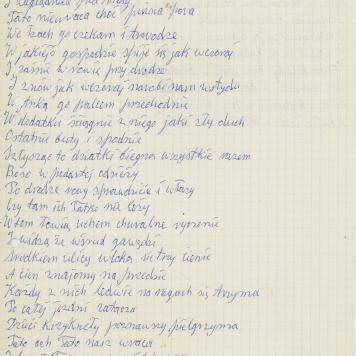 Tato niewraca choć późna pora
We łzach go czekam i trwodze
W jakiejś gospodzie spije się jak wczoraj
I zaśnie w rowie przy drodze
I znów jak wczoraj narobi nam wstydu
go palcem przechodnie
W dodatku ściągnie z niego jaki zły duch
Ostatnie buty i spodnie
Słysząc to dziatki biegną wszystkie razem
Boso w podartej odzieży
Po drodze rowy i
Czy tam ich Tatko nie leży
Wtem łowią uchem chwalne
I widzą że wśród gawiedzi
Środkiem ulicy wloką się trzy cienie
A cień znajomy na przedzie
Każdy z nich ledwie na nogach się trzyma
To całej jezdni zatacza
Dzieci krzyknęły poznawszy pielgrzyma
Tato ach Tato nasz wraca